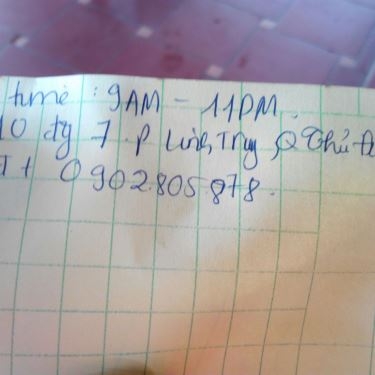 time : 9AM - 11PM.
10 đg 7 . P Linh Trung, Q Thủ Đ
ĐT + 0902.805 878.